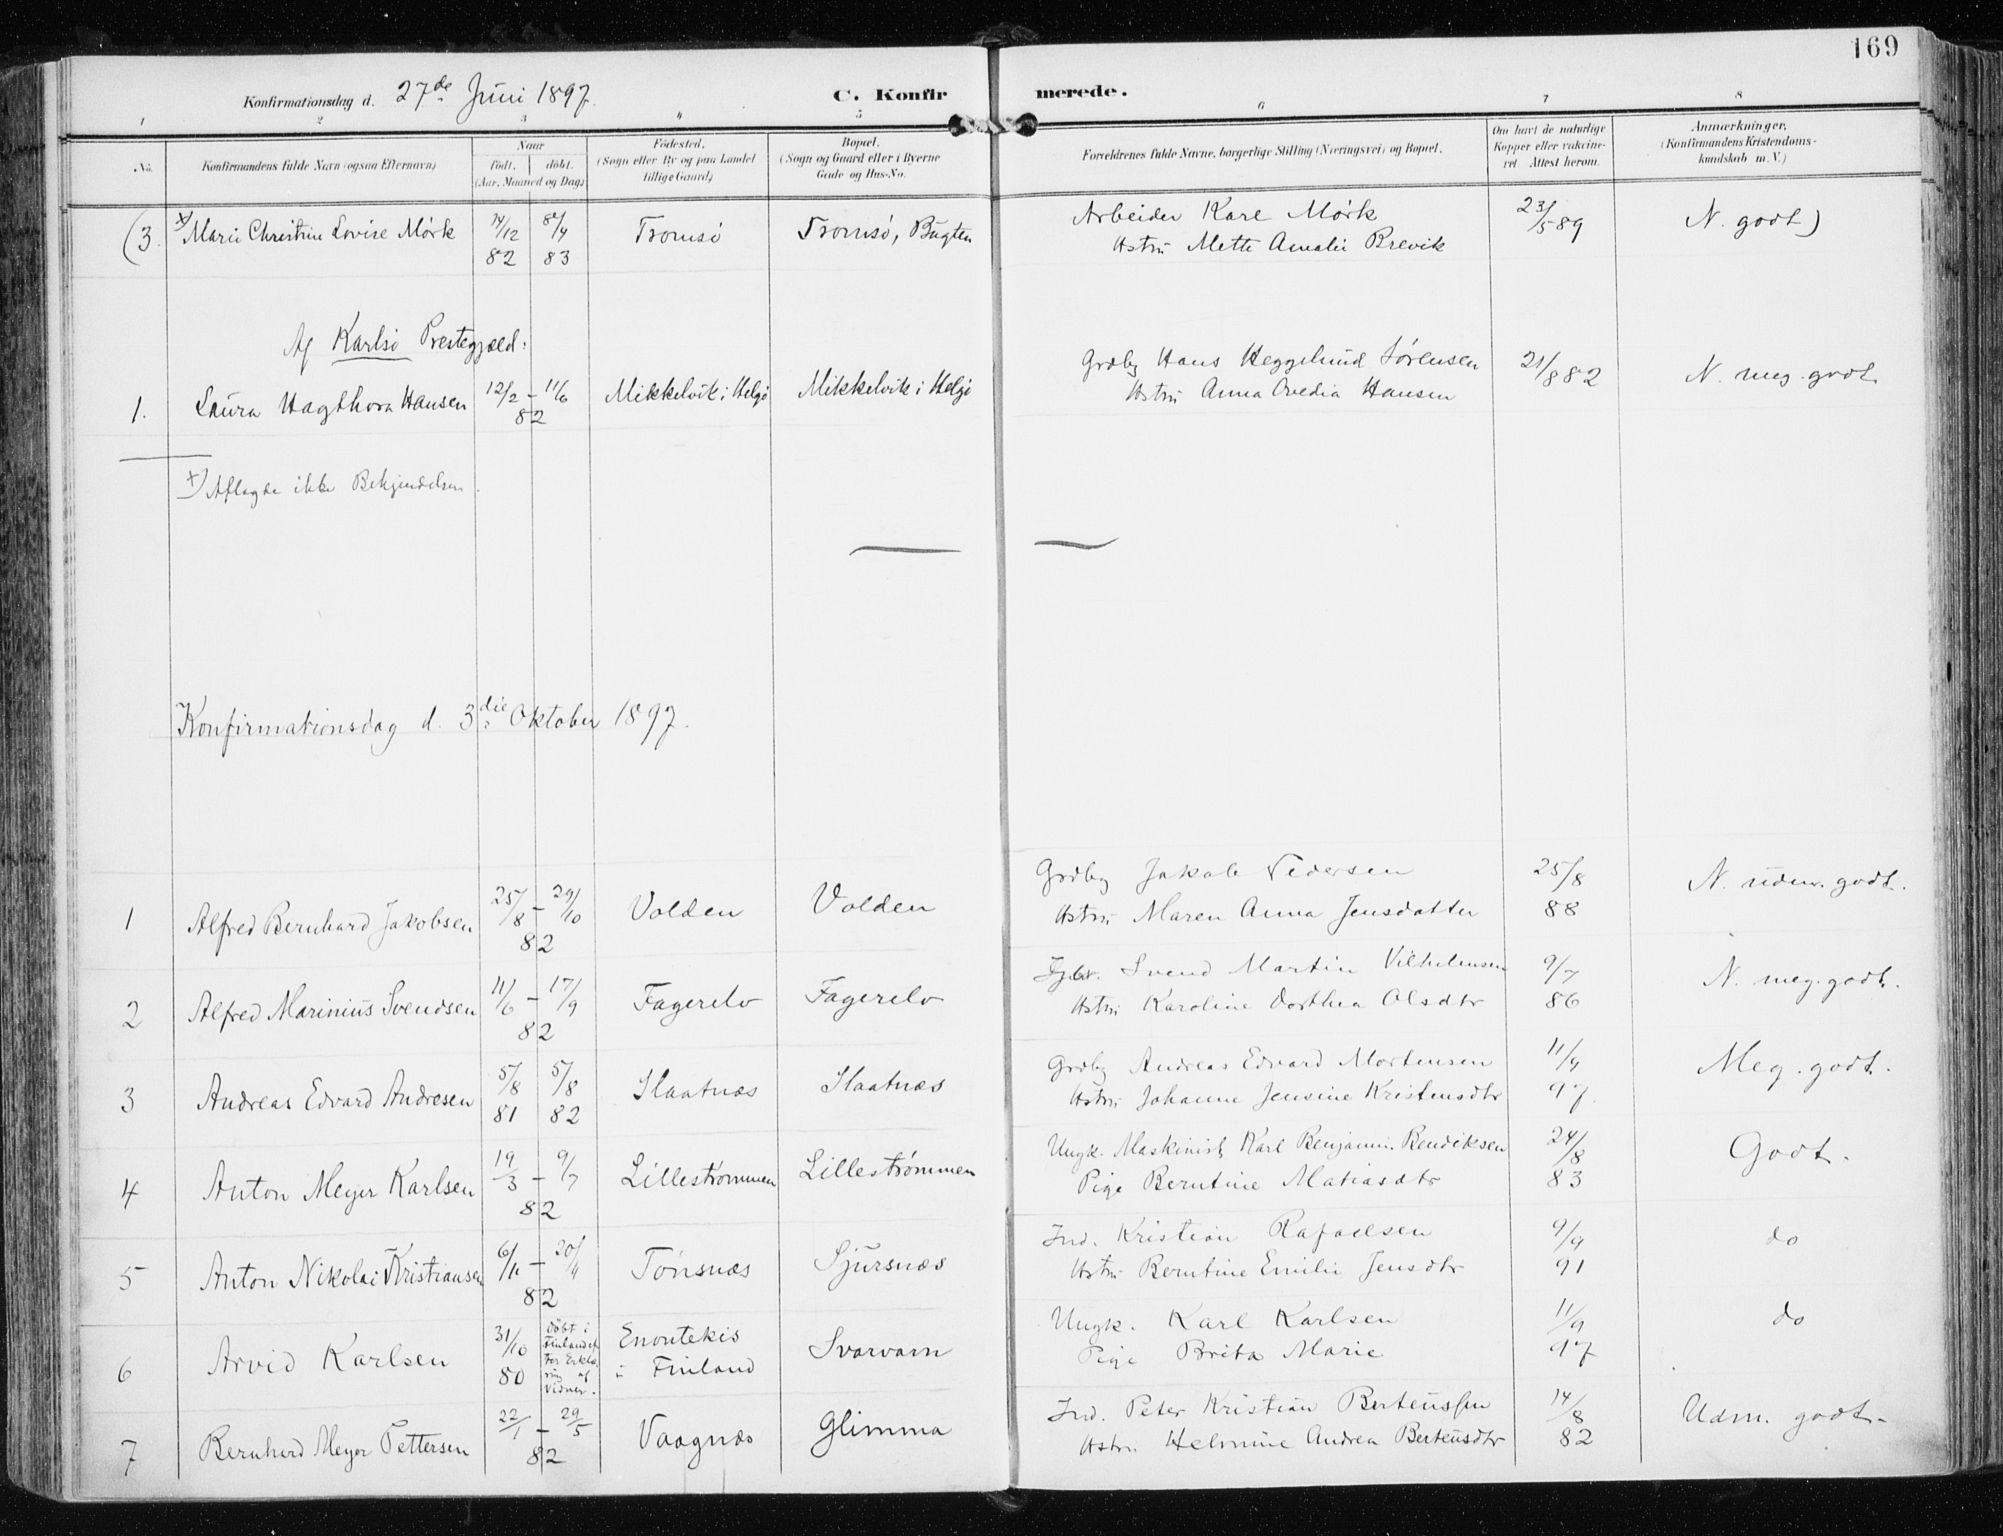 169
Konfirmationsdag d. 27de Juni 1897. C. Konfirmerede.
1 2 3 4 5 6 7 8
No. Konfirmandens fulde Navn (ogsaa Efternavn) Naar født, døbt. (Aar, Maaned og Dag) Fødested. (Sogn eller By og paa Landet tillige Gaard) Bopæl. (Sogn og Gaard eller i Byerne Gade og Hus-No. Forældrenes fulde Navne, borgerlige Stilling (Næringsvei) og Bopæl. Om havt de naturlige Kopper eller vakcineret. Attest herom. Anmærkninger. (Konfirmandens Kristendomskundskab m. V.)
(3. x) Marie Christine Lovise Mørk 14/12 82 8/4 83 Tromsø Tromsø, Bugten Arbeider Karl Mørk
Hstru Mette Amalie Brevik 23/5 89 N. godt)
Af Karlsø Prestegjæld:
1. Laura Hagthora Hansen 12/2 - 11/6 82 Mikkelvik i Helgø Mikkelvik i Helgø Grdby Hans Heggelund Sørensen
Hstru Anna Ovedia Hansen 21/8 82 N. meg. godt.
x) Aflagde ikke Bekjendelsen.
Konfirmationsdag d. 3die Oktober 1897.
1 Alfred Bernhard Jakobsen 25/8 - 29/10 82 Volden Volden Grdby Jakob Pedersen
Hstru Maren Anna Jensdatter 25/8 88 N. udm. godt.
2 Alfred Marinius Svendsen 11/6 - 17/9 82 Fagerelv Fagerelv Svend Martin Vilhelmsen
Hstru Karoline Dorthea Olsdtr 9/7 86 N. meg. godt.
3 Andreas Edvard Andresen 5/8 81 5/8 82 Slaatnæs Slaatnæs Grdby Andreas Edvard Mortensen
Hstru Johanne Jensine Kristensdtr 11/9 97. Meg. godt.
4 Anton Meyer Karlsen 19/3 - 9/7 82 Lillestrømmen Lillestrømmen Ungk. Maskinist Karl Benjamin Bendiksen
Pige Berntine Matiasdtr 24/8 83 Godt.
5 Anton Nikolai Kristiansen 6/11 - 20/4 82 Tønsnæs Sjursnæs Ind. Kristian Rafaelsen
Hstru Berntine Emilie Jensdtr 9/9 91 do
6 Arvid Karlsen 31/10 80 Døbt i Finland ef- ter Erklæ- ring af Vidner. Enontekis i Finland Svarvarn Ungk. Karl Karlsen
Pige Brita Marie 11/9 97 do
7 Bernhard Meyer Pettersen 22/1 - 29/5 82 Vaagnæs Glimma Ind. Peter Kristian Berteussen
Hstru Helmine Andrea Berteusdtr 14/8 82 Udm. godt.